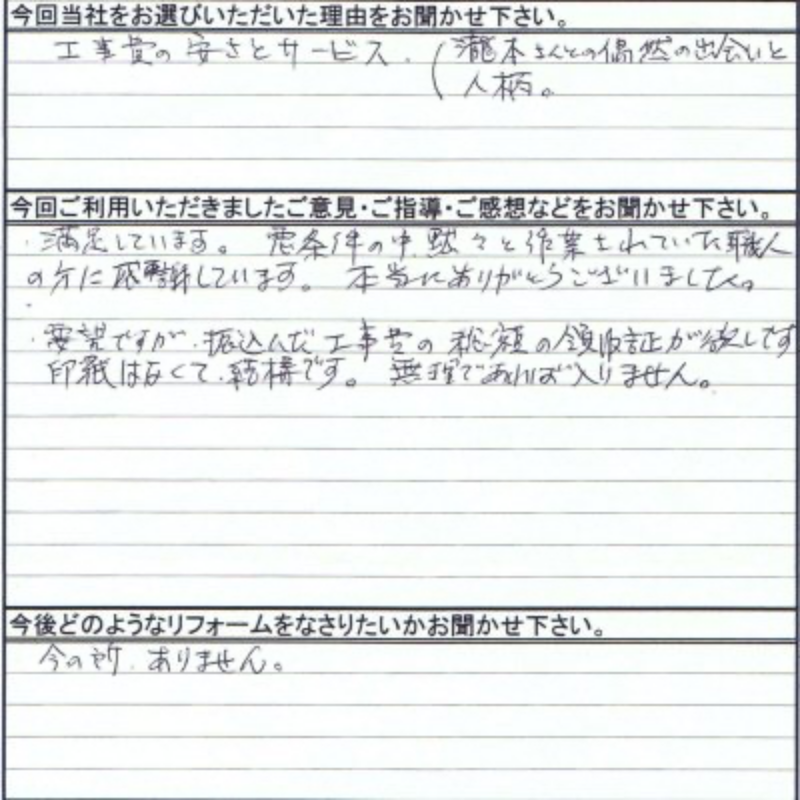 今回当社をお選びいただいた理由をお聞かせ下さい。
工事費の安さとサービス. (瀧本さんとの偶然の出会いと
人柄。
今回ご利用いただきましたご意見・ご指導・ご感想などをお聞かせ下さい。
・満足しています。 悪条件の中黙々と作業をされていた職人
の方に感謝しています。 本当にありがとうございました。
・要望ですが、振込んだ工事費の総額の領収証が欲しいです
印紙はなくて、結構です。 無理であれば入りません。
今後どのようなリフォームをなさりたいかお聞かせ下さい。
今の所、ありません。